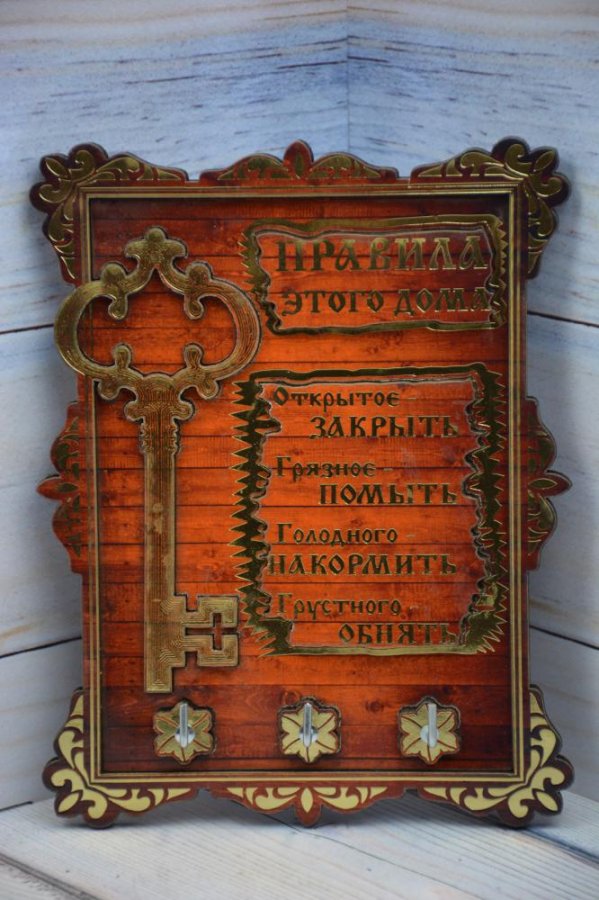 ПРАВИЛА
ЭТОГО ДОМА
Открытое -
ЗАКРЫТЬ
Грязное -
ПОМЫТЬ
Голодного -
НАКОРМИТЬ
Грустного -
ОБНЯТЬ